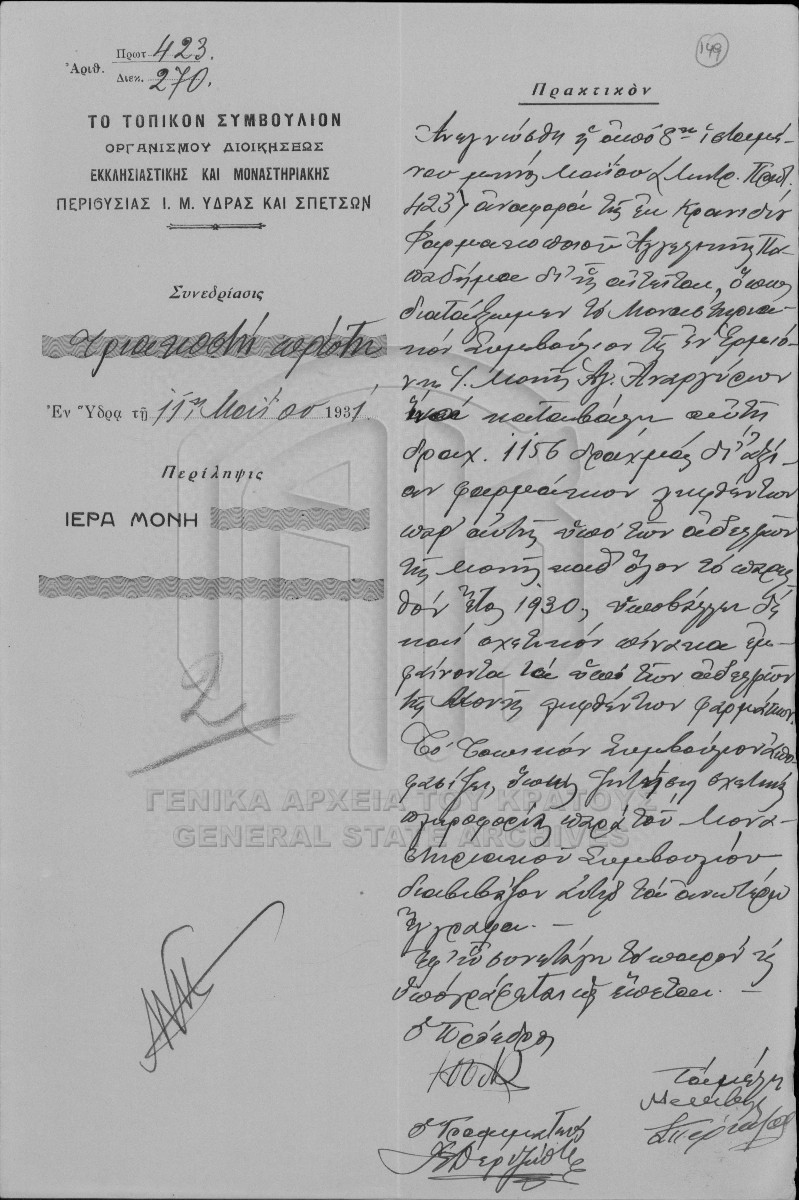 Ἀριθ. Πρωτ. 423.
Διεκ. 270.
ΤΟ ΤΟΠΙΚΟΝ ΣΥΜΒΟΥΛΙΟΝ
ΟΡΓΑΝΙΣΜΟΥ ΔΙΟΙΚΗΣΕΩΣ
ΕΚΚΛΗΣΙΑΣΤΙΚΗΣ ΚΑΙ ΜΟΝΑΣΤΗΡΙΑΚΗΣ
ΠΕΡΙΟΥΣΙΑΣ Ι. Μ. ΥΔΡΑΣ ΚΑΙ ΣΠΕΤΣΩΝ
Συνεδρίασις
τριακοστή πρώτη
Ἐν Ὕδρᾳ τῇ 11ῃ Μαΐου 1931
Περίληψις
ΙΕΡΑ ΜΟΝΗ
2
149
Πρακτικὸν
Ἀνεγνώσθη ἡ ἀπό 8ης ἱσταμέ-
νου μηνός Μαΐου ἐ.ἔ. Πρωτ.
423) ἀναφορά τῆς ἐκ Κρανιδίου
Φαρμακοποιοῦ Ἀγγελικῆς Πα-
παδήμα δι' ἧς αἰτεῖται, ὅπως
διατάξωμεν τό Μοναστηρια-
κόν Συμβούλιον τῆς ἐν Ἑρμιό-
νῃ Ἱ. Μονῆς Ἁγ. Ἀναργύρων
καταβάλῃ αὐτῇ
δραχ. 1156 δραχμάς δι' ἀξί-
αν φαρμάκων ληφθέντων
παρ' αὐτῆς ὑπό τῶν ἀδελφῶν
τῆς Μονῆς καθ' ὅλον τό παρελ-
θόν ἔτος 1930, ὑποβάλλει δέ
καί σχετικόν πίνακα ἐμ-
φαίνοντα τά ὑπό τῶν ἀδελφῶν
τῆς Μονῆς ληφθέντων φαρμάκων.
Τό Τοπικόν Συμβούλιον ἀπο-
φασίζει, ὅπως ζητήσῃ σχετικάς
πληροφορίας παρά τοῦ Μονα-
στηριακοῦ Συμβουλίου
διαβιβάζον αὐτῷ τά ἀνωτέρω
ἔγγραφα. —
Ἐφ' ᾧ συνετάγη τό παρόν καί
ὑπογράφεται ὡς ἕπεται. —
Ὁ Πρόεδρος
Τά μέλη
Ὁ Γραμματεύς
ΓΕΝΙΚΑ ΑΡΧΕΙΑ ΤΟΥ ΚΡΑΤΟΥΣ
GENERAL STATE ARCHIVES